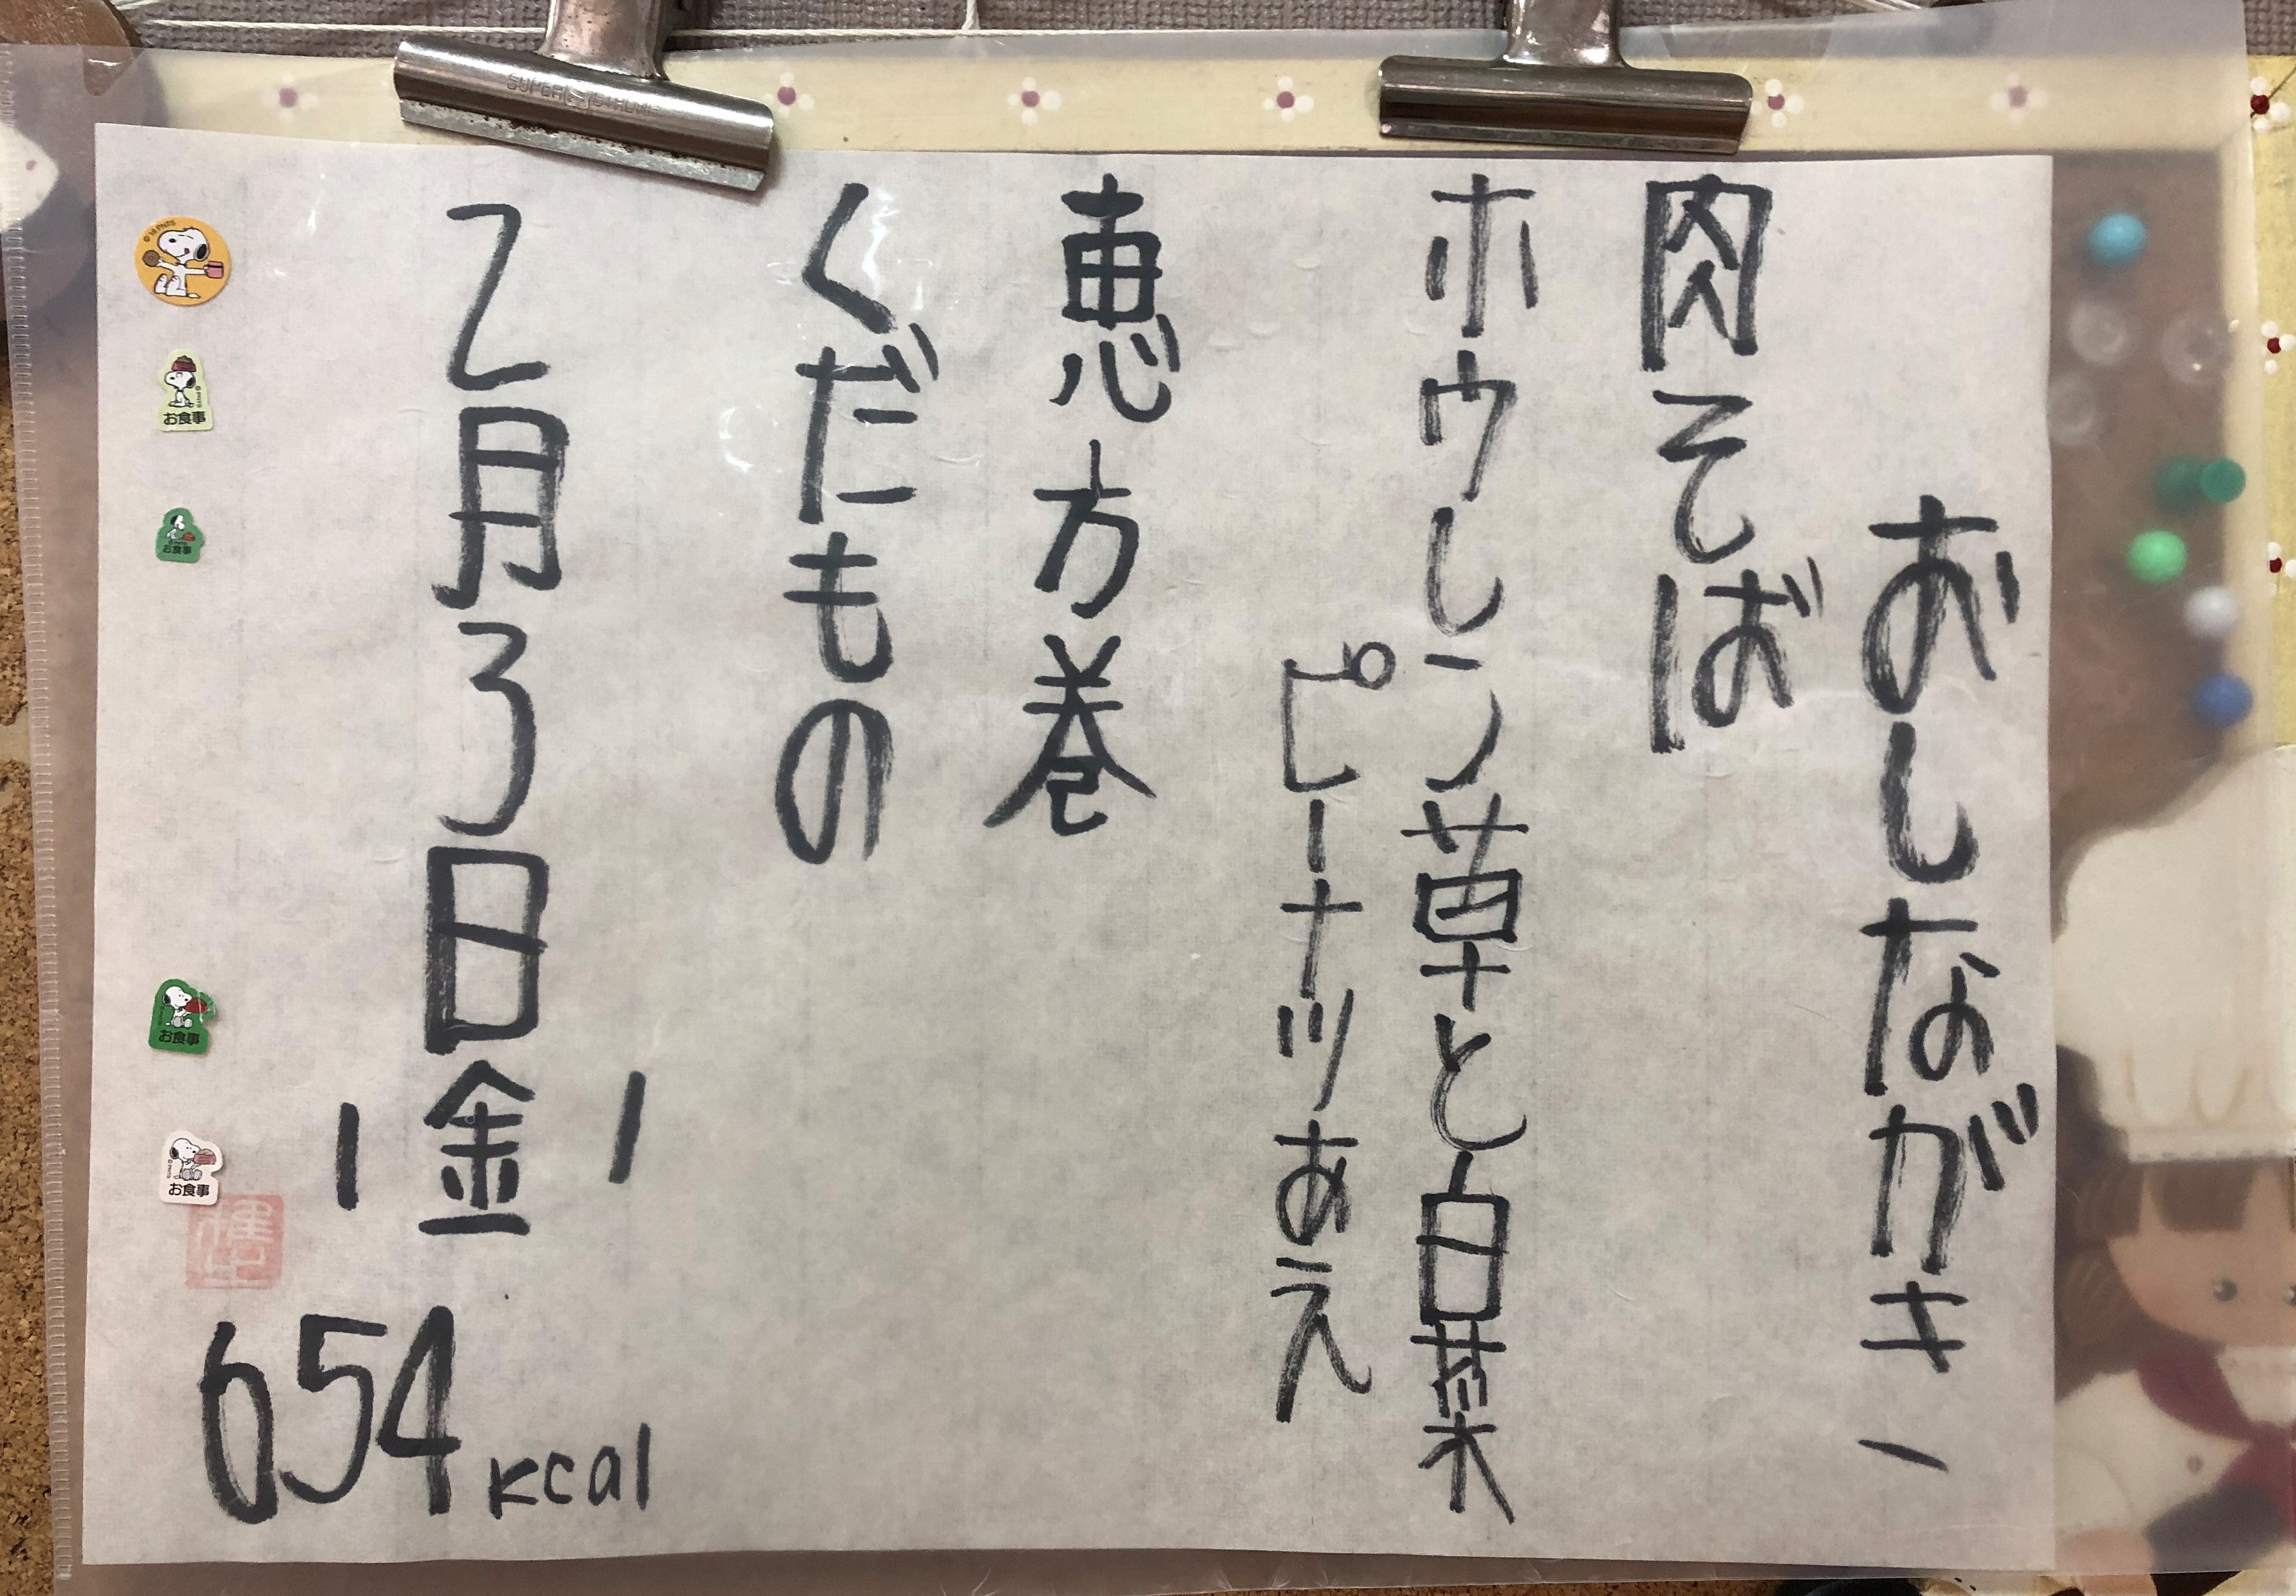 おしながき
肉そば
ホウレン草と白菜
ピーナツあえ
恵方巻
くだもの
2月3日金
654 kcal
お食事
お食事
お食事
お食事